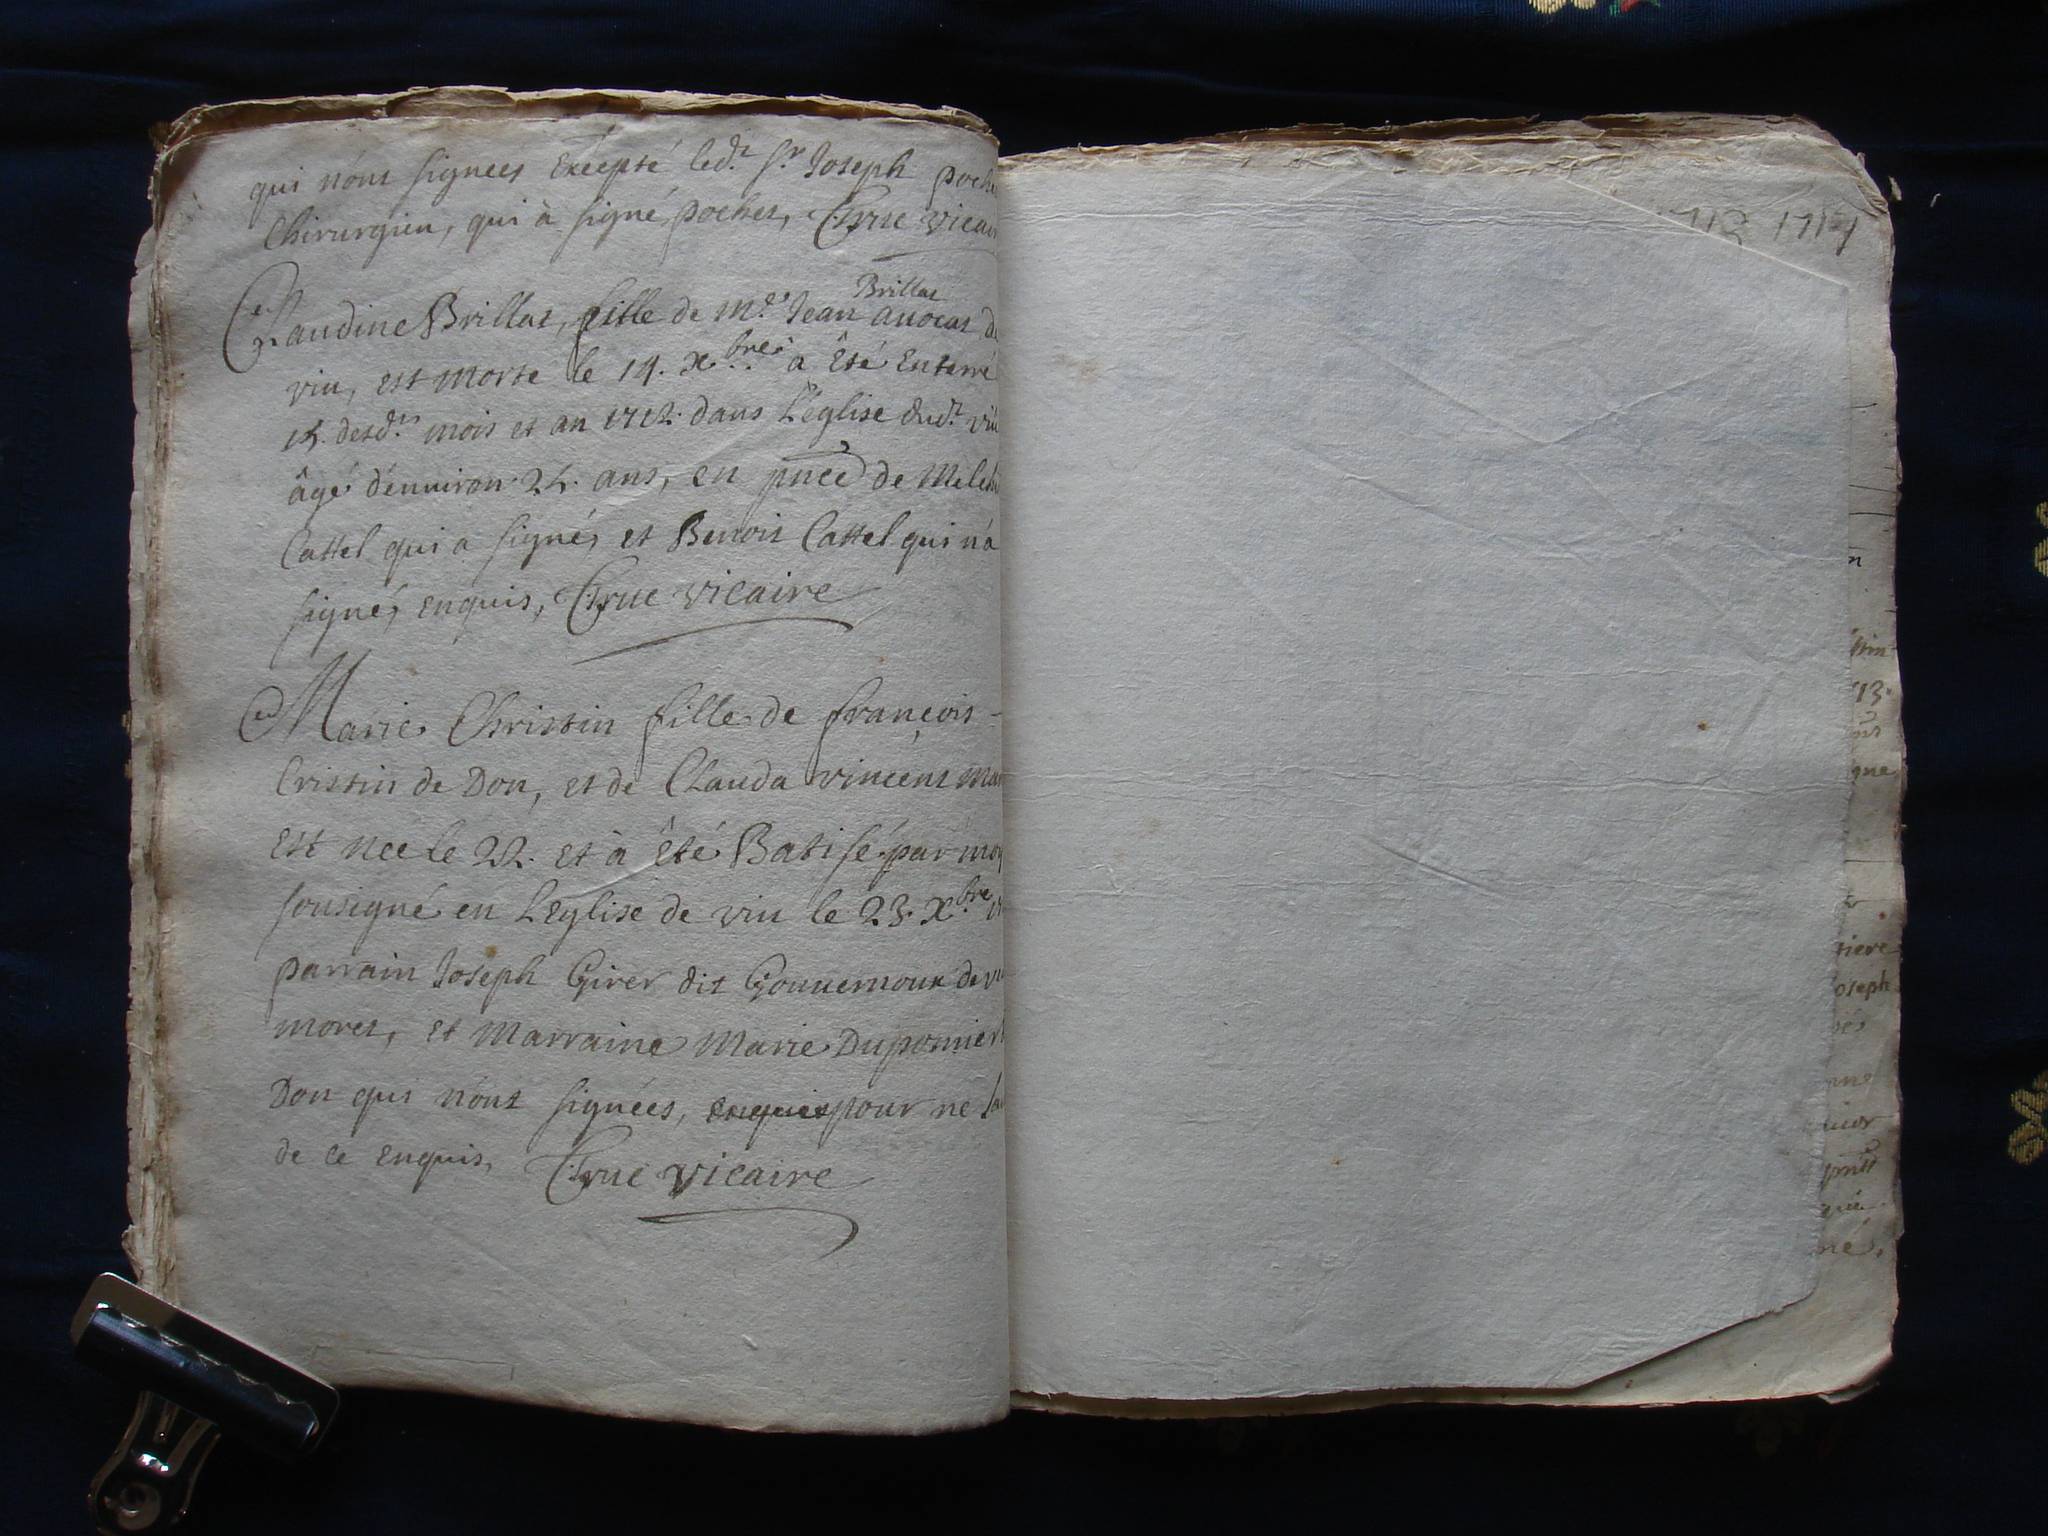 qui n'ont signées Excepté led.t s.r Joseph poche
Chirurgien, qui à signé, pochet, Chrue vicai
Claudine Brillat, fille de M.e Jean Brillat avocat de
viu, est morte le 14. xbre à été Enterré
15. desd.ts mois et an 1712. dans L'église dud.t viu
âgé d'enuiron 24. ans, en pnce de Melch
Cattel qui a signé, et Benoit Cattel qui n'a
signé, enquis, Chrue vicaire
Marie Christin fille de françois -
Cristin de Don, et de Clauda vincent Mar
Est néé le 22. et à été Batisé par moy
sousigné en L'Eglise de viu le 23. xbre 17
parrain Joseph Girer dit Gouuernour de vi
moret, et Marraine Marie Duponnier
Don qui n'ont signées, pour ne sa
de ce enquis, Chrue vicaire
1713 1714
13.
gne
tiere
oseph
né,